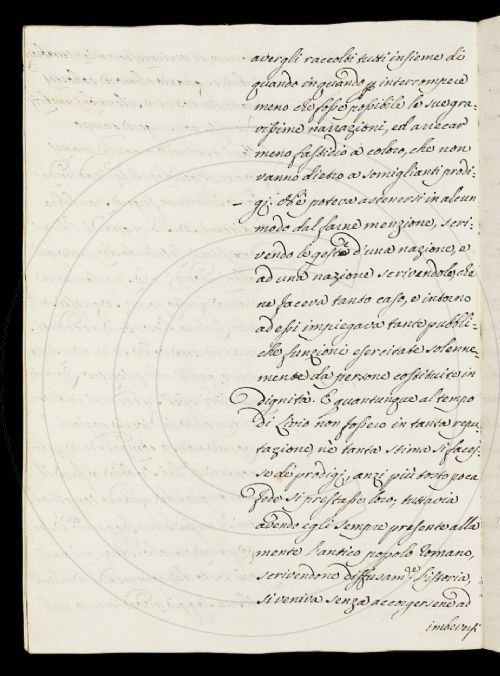 avergli raccolti tutti insieme di
quando inquando p interrompere
meno che fosse possibile le sue gra-
vissime narrazioni, ed arrecar
meno fastidio a coloro, che non
vanno dietro a somiglianti prodi-
gj. Nè poteva astenersi in alcun
modo dal farne menzione, scri-
vendo le gesta d'una nazione, e
ad una nazione scrivendole, che
ne faceva tanto caso, e intorno
ad essi impiegava tante pubbli-
che funzioni esercitate solenne-
mente da persone costituite in
dignità. E quantunque al tempo
di Livio non fossero in tanta repu-
tazione, nè tanta stima si faces-
se de' prodigj, anzi più tosto poca
fede si prestasse loro; tuttavia
avendo egli sempre presente alla
mente l'antico popolo Romano,
scrivendone diffusam.te l'istoria,
si veniva senza accorgersene ad
imbeversi